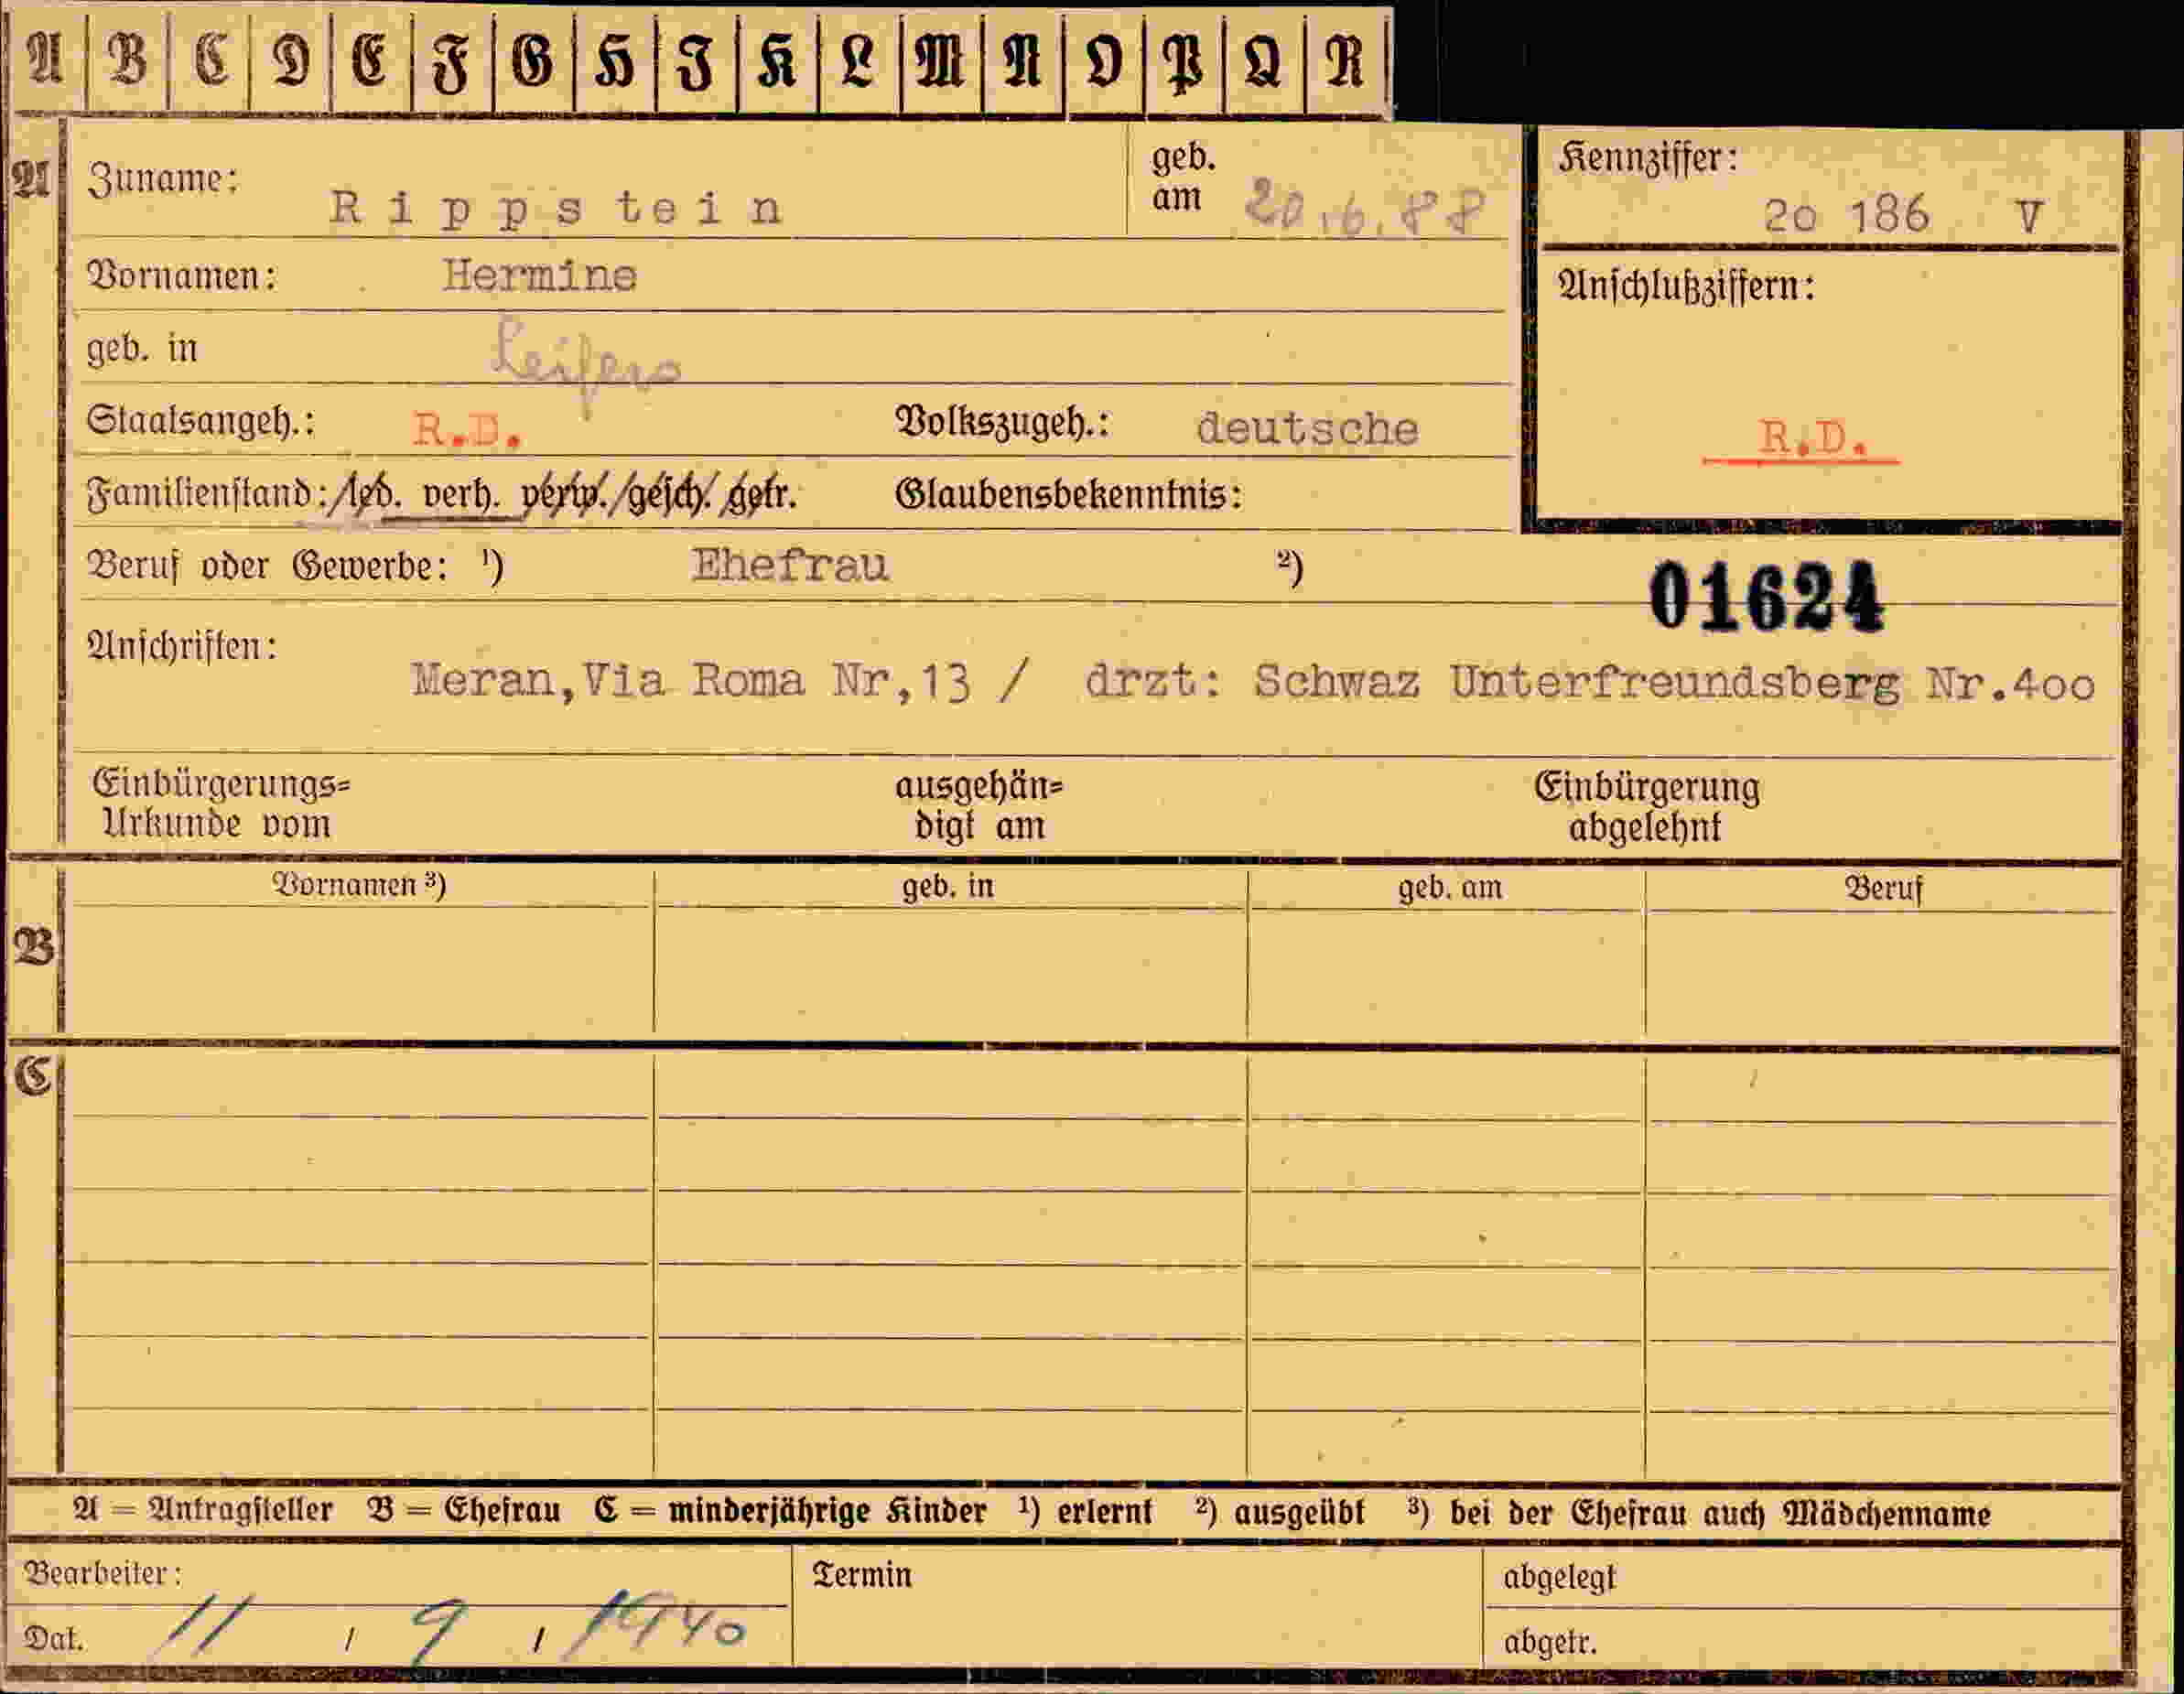 A B C D E F G H I K L M N O P Q R
A Zuname: Rippstein geb. am 20.6.88 Kennziffer: 20 186 V
Vornamen: Hermine Anschlußziffern:
geb. in Leifers
Staatsangeh.: R.D. Volkszugeh.: deutsche R.D.
Familienstand: led. verh. verw. gesch. getr. Glaubensbekenntnis:
Beruf oder Gewerbe: ¹) Ehefrau ²) 01624
Anschriften: Meran,Via Roma Nr,13 / drzt: Schwaz Unterfreundsberg Nr.4oo
Einbürgerungs= ausgehän= Einbürgerung
Urkunde vom digt am abgelehnt
B Vornamen ³) geb. in geb. am Beruf
C
A = Antragsteller B = Ehefrau C = minderjährige Kinder ¹) erlernt ²) ausgeübt ³) bei der Ehefrau auch Mädchenname
Bearbeiter: Termin abgelegt
Dat. 11 / 9 / 1940 abgetr.